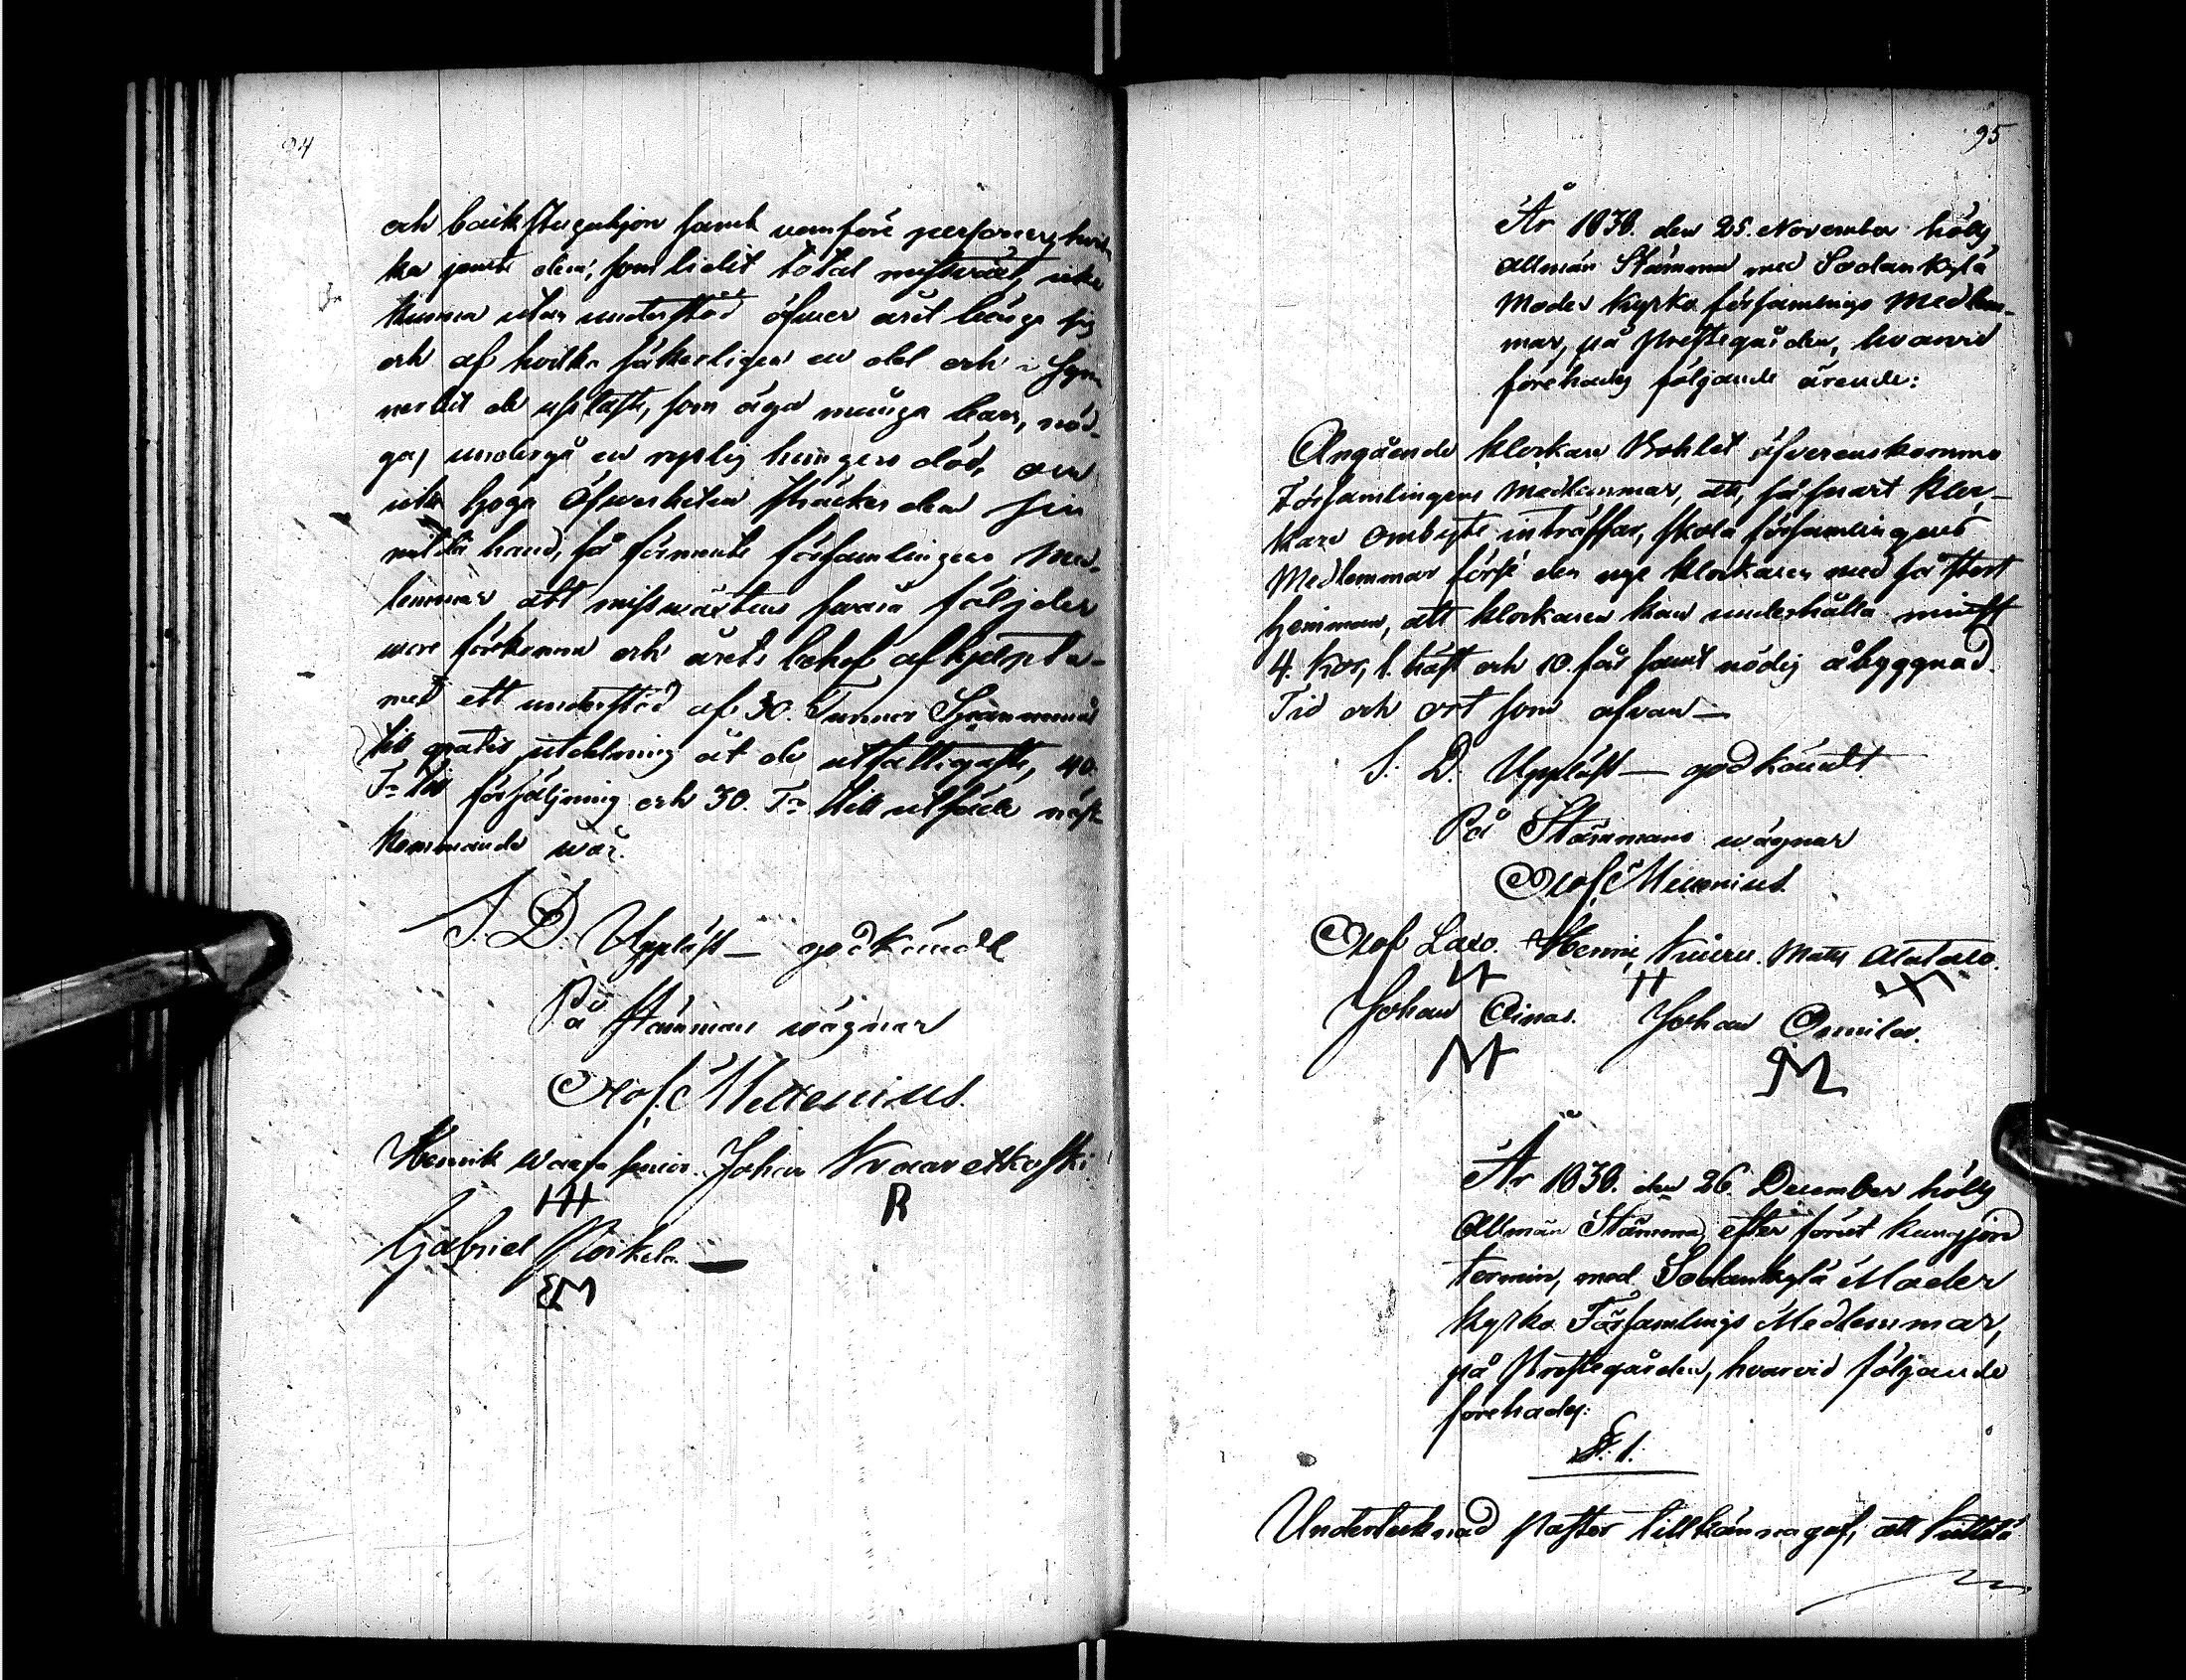 94
och backstuguhjon samt vanföre personer, hvil-
ka jemte dem, som lidit total missväxt, icke
kunna utan understöd öfwer året berga sig
och af hvilka säkerligen en del och i synn
nerhet de uslaste, som äga många barn, nöd-
gas undergå en ryslig hungers död, om
icke Höga Öfwerheten sträcker dem sin
milda hand, så förmente församlingens Med-
lemmar att missväxtens svåra följder
wore förekomna och årets behof afhjelpta
med ett understöd af 30. Tunnor Spannmål
till gratis utdelning åt de utfattigaste, 40.
Tr till försäljning och 30. Tr till utsäde näst-
kommande wår.
S. D. Uppläst — godkändt
På Stämmans wägnar
Olof Mellenius.
Henrik Waara senior. Johan Kaaretkoski
R
Gabriel Porkela. —
95
År 1838. den 25. November hölls
Allmän Stämma med Sodankylä
Moder Kyrko församlings Medlem-
mar, på Prestegården, hvarvid
förehades följande ärende:
Angående Klockare Bohlet öfverenskommo
Församlingens Medlemmar, att, så snart Kloc-
kare ombyte inträffar, skola församlingens
Medlemmar förse den nye Klockaren med så stort
Hemman, att Klockaren kan underhålla minst
4. Kor, 1. häst och 10. får samt nödig åbyggnad.
Tid och ort som ofvan —
S. D. Uppläst — godkändt
På Stämmans wägnar
Olof Mellenius.
Olof Laxo. Henric Kuieru. Mats Alatalo.
Johan Ainas. Johan Onnila.
År 1838. den 26. December hölls
Allmän Stämma, efter förut kungjord
termin, med Sodankylä Moder
Kyrko Församlings Medlemmar,
på Prestegården, hvarvid följande
förehades:
§. 1.
Undertecknad Pastor tillkännagaf, att Kittilä